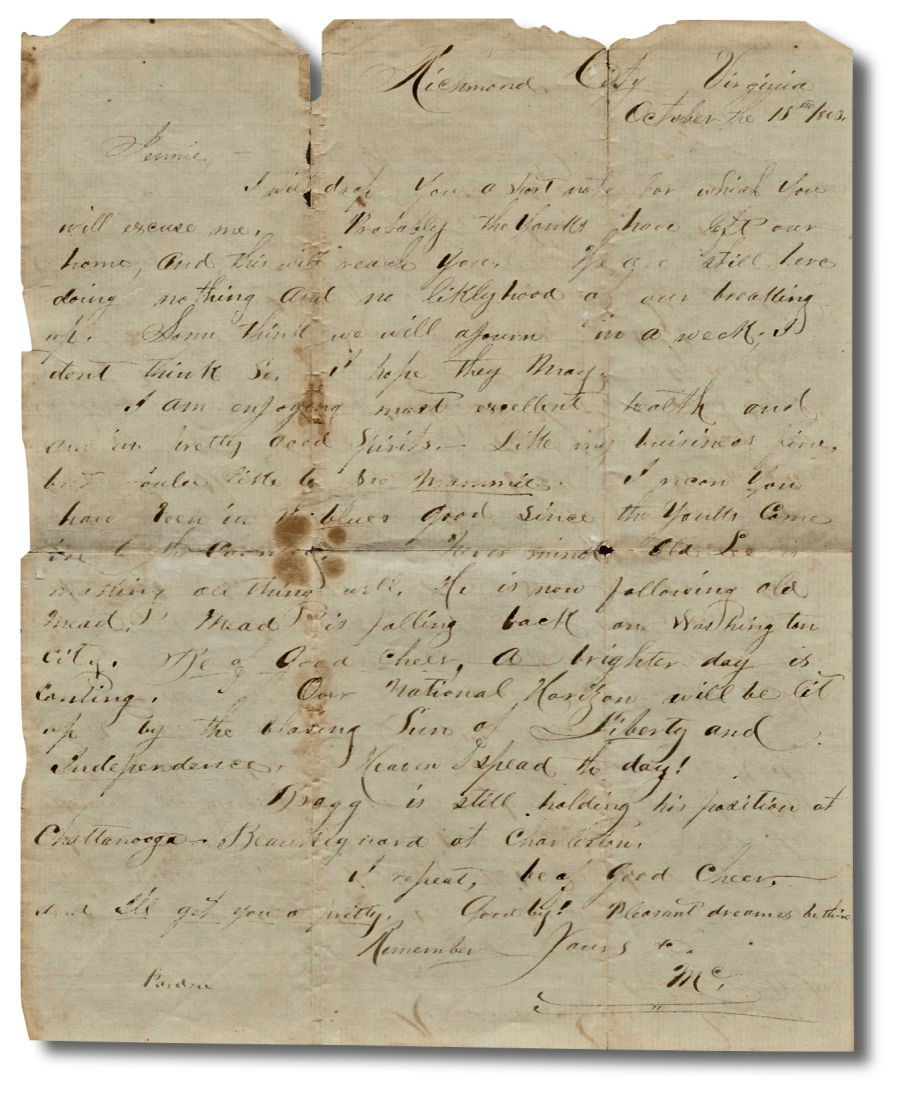 Richmond City Virginia
October the 15th /863.
Jennie, -
I will drop you a short note for which you
will excuse me. Probably the Yanks have left our
home, and this will reach you. We are still here
doing nothing and no liklyhood of our breaking
up. Some think we will ajourn in a week; I
dont think so. I hope they may.
I am enjoying most excellent health and
am in pretty good spirits. Like my buisiness fine,
but would like to see Mammie. I recon you
have been in the blues good since the Yanks came
in to the Never mind Old Lee is
all things well. He is now following old
Mead. Mead is falling back on Washington
City. Be of Good Cheer, a brighter day is
coming. Our National Horizon will be lit
up by the blazing Sun of Liberty and
Independence. Heaven speed the day!
Bragg is still holding his position at
Chattanooga - Beauregard at Charleston.
I repeat, be of Good Cheer,
and I'll get you a pretty. Goodby! Pleasant dreames be thine
Remember Yours
Mc.